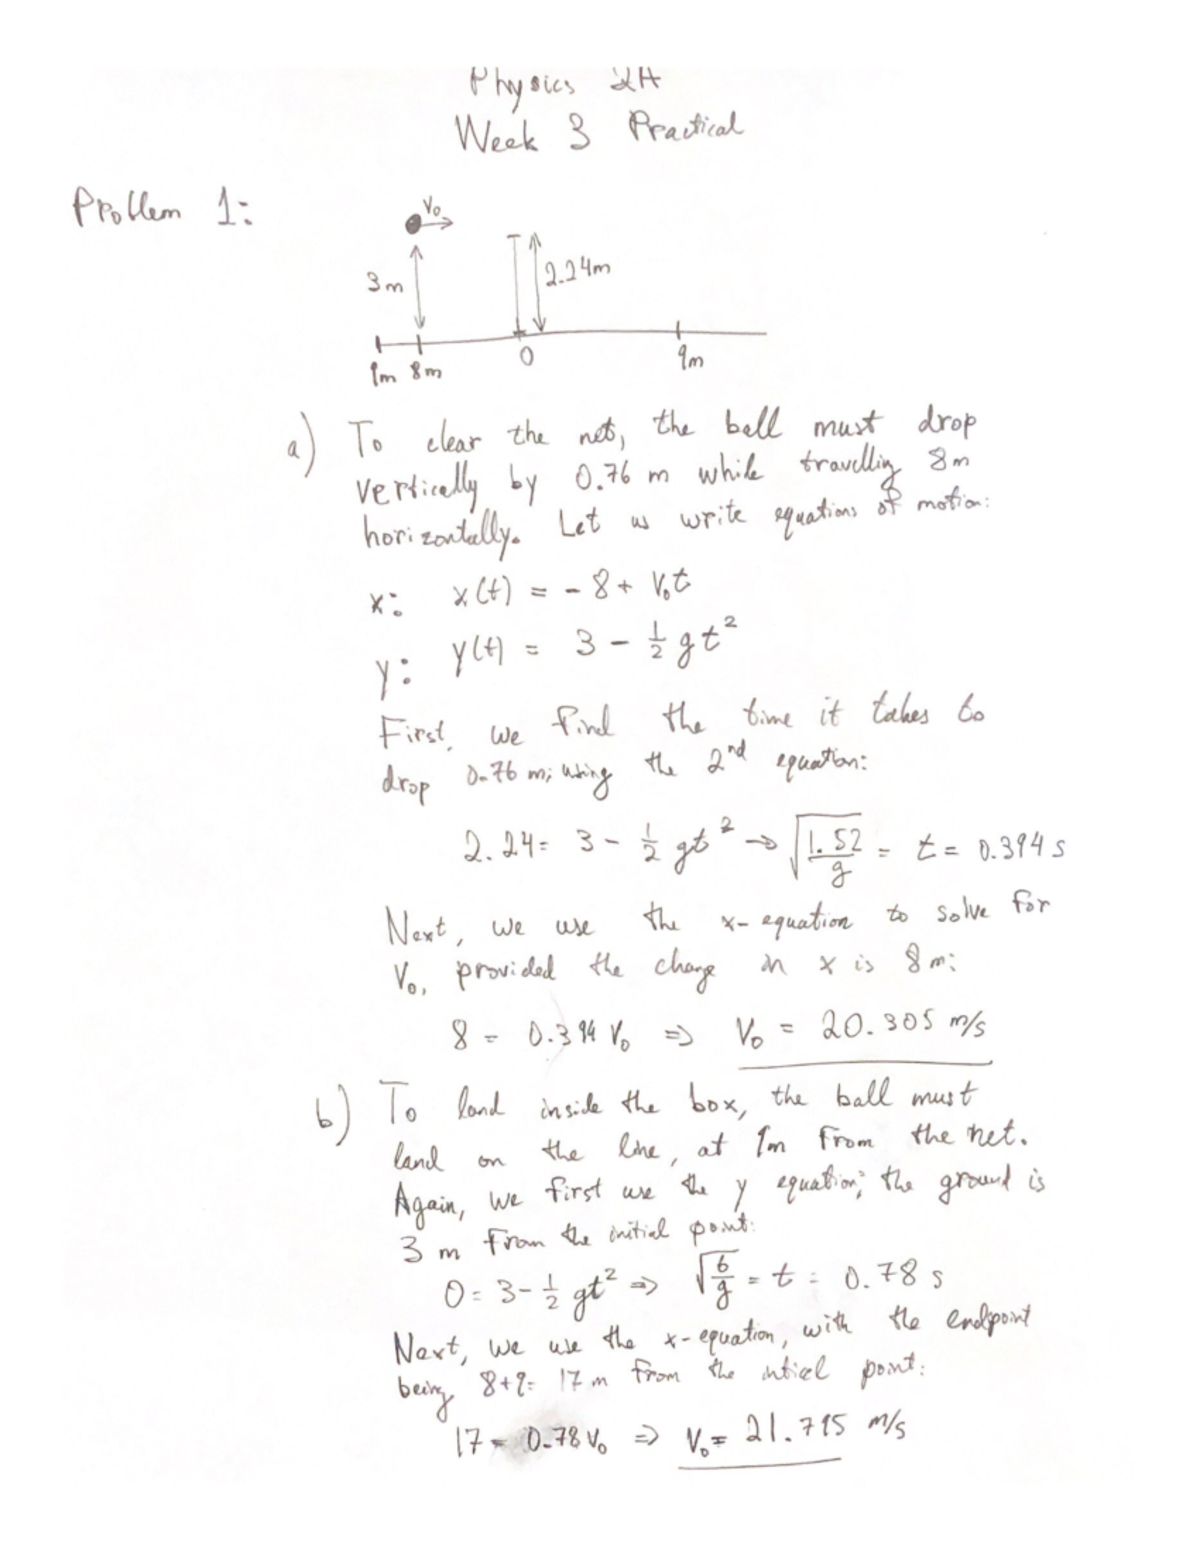 Physics 2A
Week 3 Practical
Problem 1:
V₀
3m
2.24m
9m 8m
0
9m
a) To clear the net, the ball must drop
vertically by 0.76 m while travelling 8m
horizontally. Let us write equations of motion:
x: x(t) = -8 + V₀t
y: y(t) = 3 - ½ gt²
First, we find the time it takes to
drop 0.76 m; using the 2nd equation:
2.24 = 3 - ½ gt² → √(1.52/g) = t = 0.394 s
Next, we use the x-equation to solve for
V₀, provided the change in x is 8 m:
8 = 0.394 V₀ ⇒ V₀ = 20.305 m/s
b) To land inside the box, the ball must
land on the line, at 9m from the net.
Again, we first use the y equation; the ground is
3 m from the initial point:
0 = 3 - ½ gt² ⇒ √(6/g) = t = 0.78 s
Next, we use the x-equation, with the endpoint
being 8+9= 17 m from the intial point:
17 = 0.78 V₀ ⇒ V₀ = 21.795 m/s